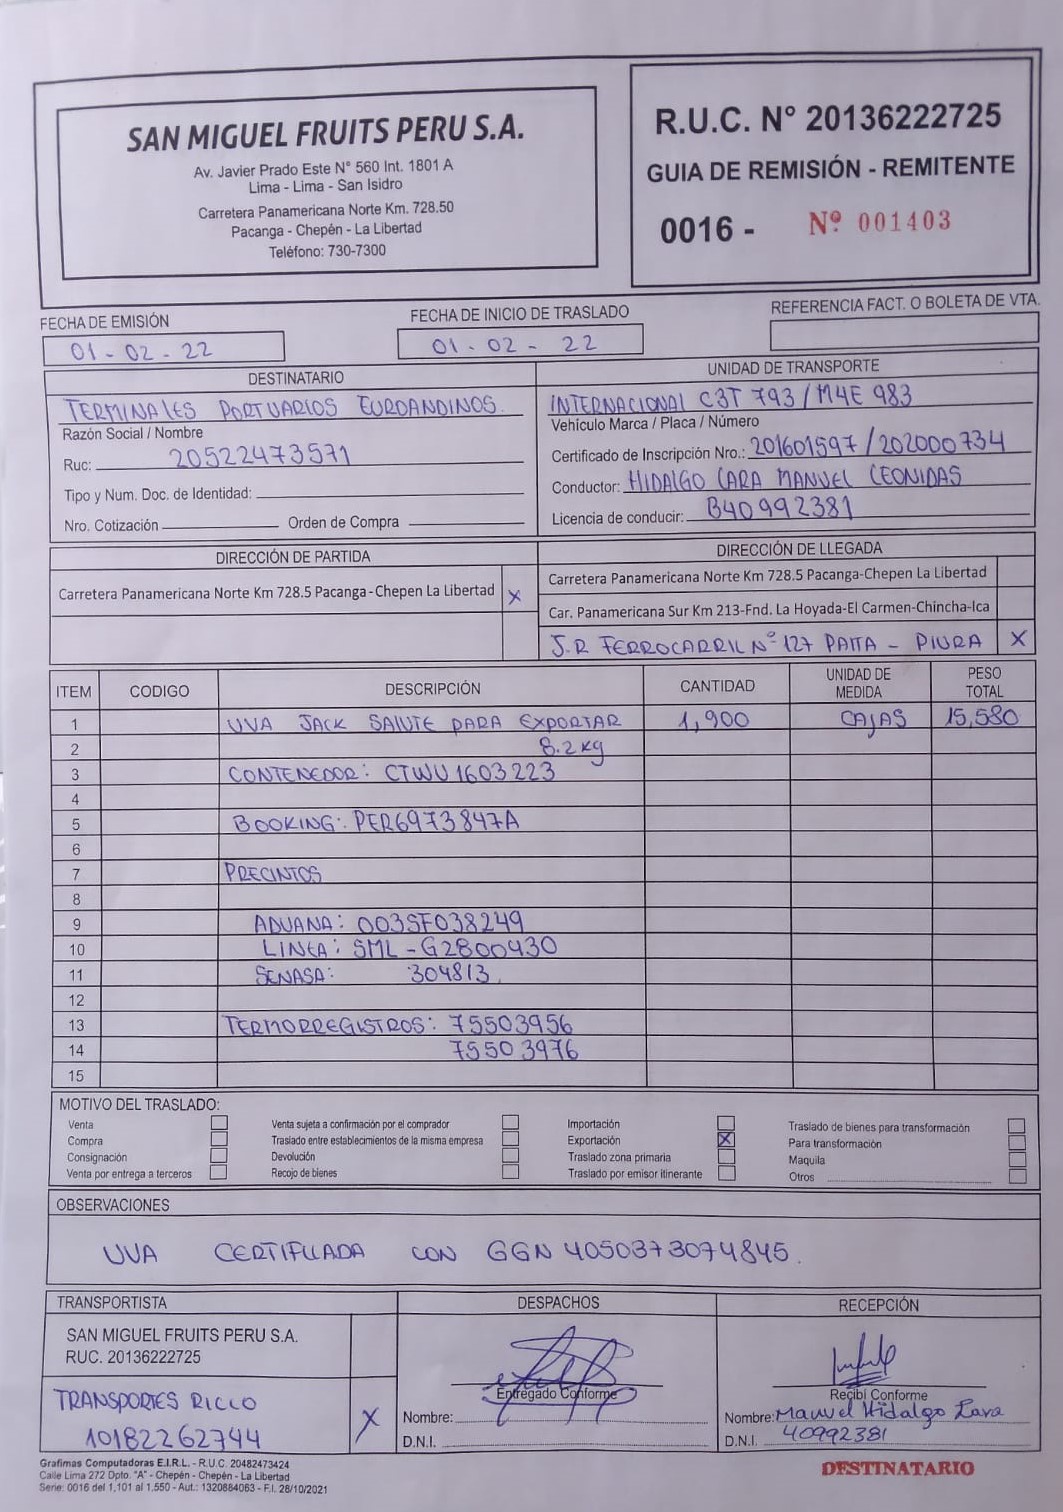 SAN MIGUEL FRUITS PERU S.A.
Av. Javier Prado Este N° 560 Int. 1801 A
Lima - Lima - San Isidro
Carretera Panamericana Norte Km. 728.50
Pacanga - Chepén - La Libertad
Teléfono: 730-7300
R.U.C. N° 20136222725
GUIA DE REMISIÓN - REMITENTE
0016 - Nº 001403
FECHA DE EMISIÓN
01 - 02 - 22
FECHA DE INICIO DE TRASLADO
01 - 02 - 22
REFERENCIA FACT. O BOLETA DE VTA.
DESTINATARIO
TERMINALES PORTUARIOS EUROANDINOS.
Razón Social / Nombre
Ruc: 20522473571
Tipo y Num. Doc. de Identidad:
Nro. Cotización Orden de Compra
UNIDAD DE TRANSPORTE
INTERNACIONAL C3T 793 / M4E 983
Vehículo Marca / Placa / Número
Certificado de Inscripción Nro.: 201601597 / 202000734
Conductor: HIDALGO LARA MANUEL LEONIDAS
Licencia de conducir: B40992381
DIRECCIÓN DE PARTIDA
Carretera Panamericana Norte Km 728.5 Pacanga - Chepen La Libertad X
DIRECCIÓN DE LLEGADA
Carretera Panamericana Norte Km 728.5 Pacanga-Chepen La Libertad
Car. Panamericana Sur Km 213-Fnd. La Hoyada-El Carmen-Chincha-Ica
J.R FERROCARRIL N° 127 PAITA - PIURA X
ITEM CODIGO DESCRIPCIÓN CANTIDAD UNIDAD DE MEDIDA PESO TOTAL
1 UVA JACK SALUTE PARA EXPORTAR 1,900 CAJAS 15,580
2 8.2 kg
3 CONTENEDOR: CTWU1603223
4
5 BOOKING: PER6973847A
6
7 PRECINTOS
8
9 ADUANA: 003SF038249
10 LINEA: SML - G2800430
11 SENASA: 304813.
12
13 TERMORREGISTROS: 75503956
14 75503976
15
MOTIVO DEL TRASLADO:
Venta
Compra
Consignación
Venta por entrega a terceros
Venta sujeta a confirmación por el comprador
Traslado entre establecimientos de la misma empresa
Devolución
Recojo de bienes
Importación
Exportación X
Traslado zona primaria
Traslado por emisor itinerante
Traslado de bienes para transformación
Para transformación
Maquila
Otros
OBSERVACIONES
UVA CERTIFICADA CON GGN 4050373074845.
TRANSPORTISTA
SAN MIGUEL FRUITS PERU S.A.
RUC. 20136222725
TRANSPORTES RICCO
10182262744 X
DESPACHOS
Entregado Conforme
Nombre:
D.N.I.
RECEPCIÓN
Recibí Conforme
Nombre: Manuel Hidalgo Lara
D.N.I. 40992381
Grafimas Computadoras E.I.R.L. - R.U.C. 20482473424
Calle Lima 272 Dpto. "A" - Chepén - Chepén - La Libertad
Serie: 0016 del 1,101 al 1,550 - Aut.: 1320884063 - F.I. 28/10/2021
DESTINATARIO